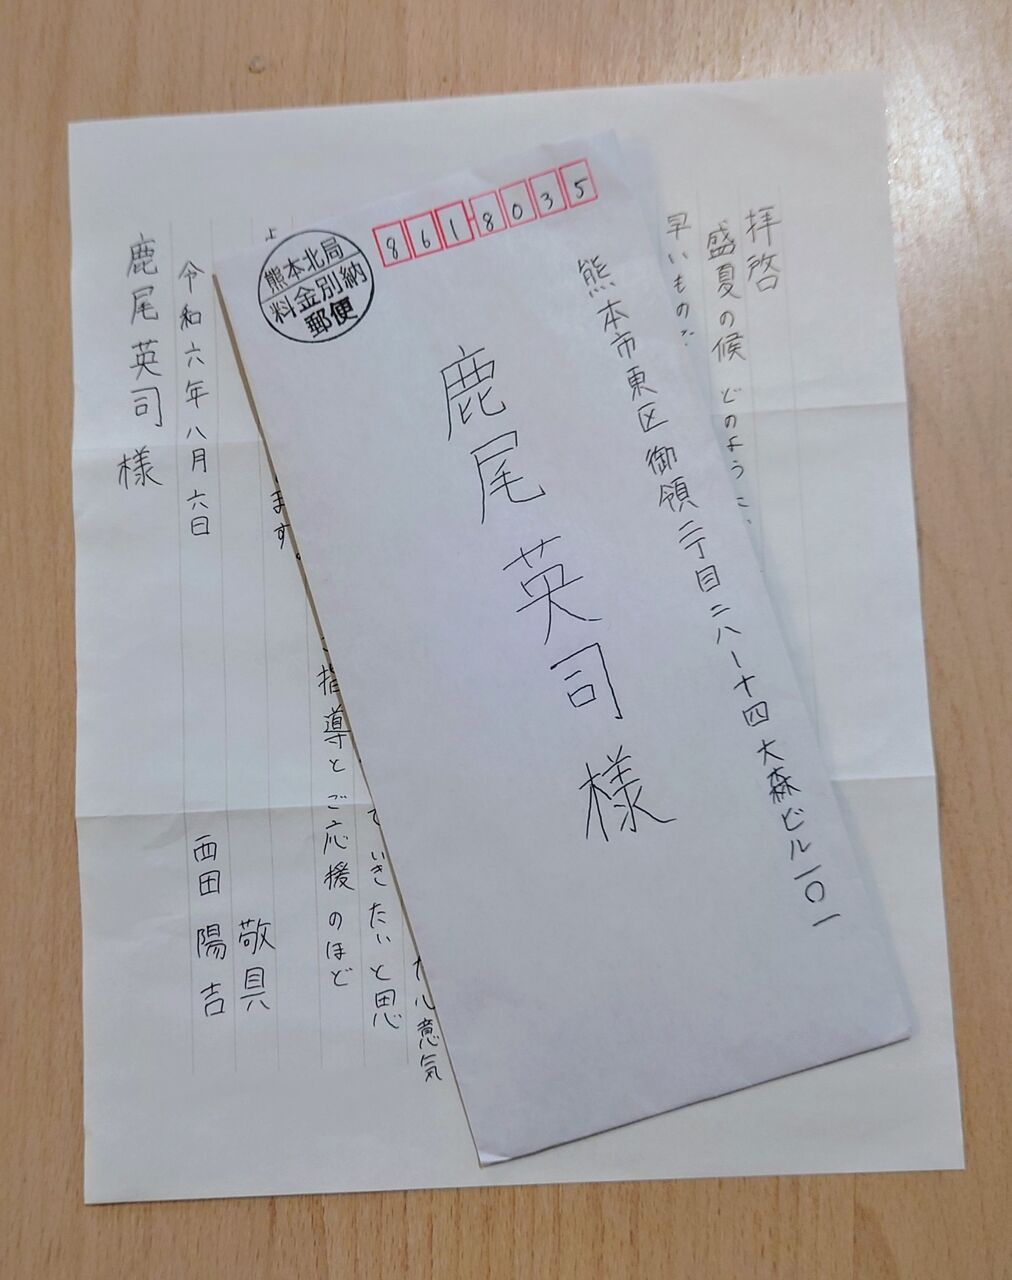 8618035
熊本市東区御領二丁目二八ー十四大森ビル一〇一
鹿尾英司様
熊本北局
料金別納
郵便
拝啓
盛夏の候 どのように
早いもので
意気
ていきたいと思
ご指導とご応援のほど
よ
います。
敬具
令和六年八月六日
西田陽吉
鹿尾英司様